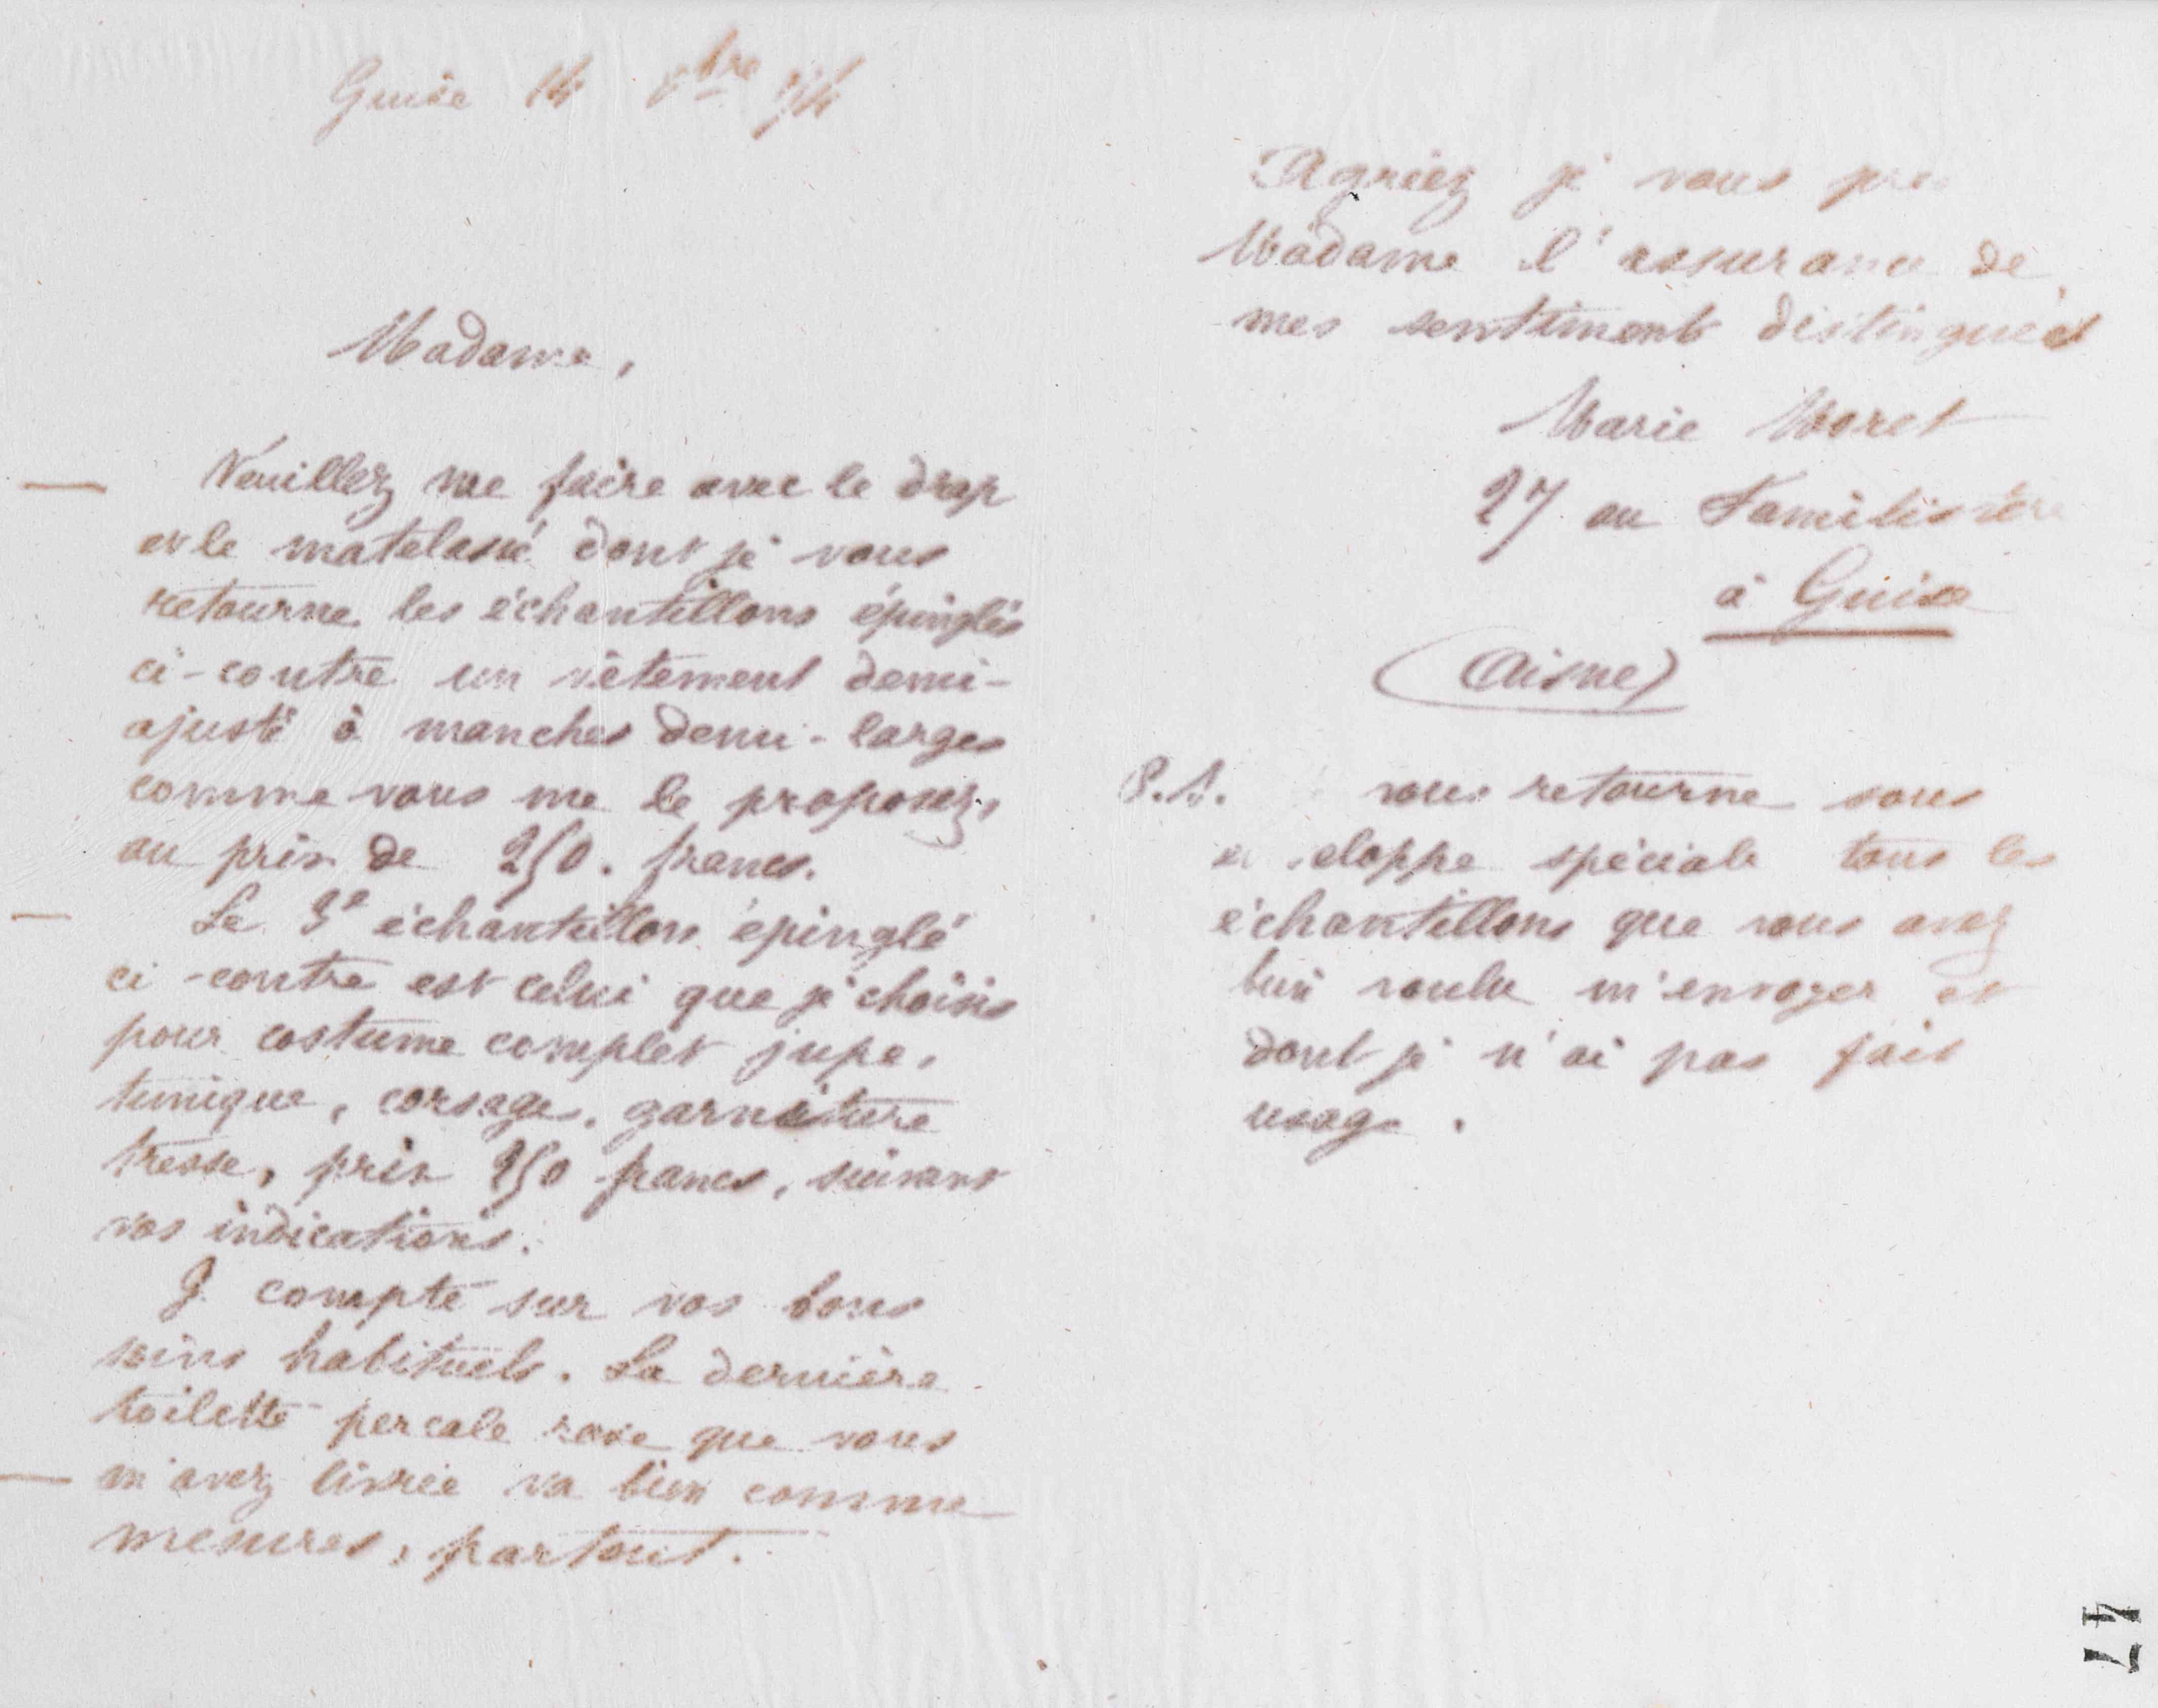 Guise 14 8bre 74
Madame,
Veuillez me faire avec le drap
et le matelassé dont je vous
retourne les échantillons épinglés
ci-contre un vêtement demi-
ajusté à manches demi-larges
comme vous me le proposez,
au prix de 250. francs.
Le 3e échantillon épinglé
ci-contre est celui que je choisis
pour costume complet jupe,
tunique, corsage, garniture
tresse, prix 250 francs, suivant
vos indications.
Je compte sur vos bons
soins habituels. La dernière
toilette percale rose que vous
m'avez livrée va bien comme
mesures, partout.
Agréez je vous prie
Madame l'assurance de
mes sentiments distingués
Marie Moret
27 au Familistère
à Guise
(Aisne)
P.S. vous retourne sous
eloppe spéciale tous les
échantillons que vous avez
bien voulu m'envoyer et
dont je n'ai pas fait
usage.
47